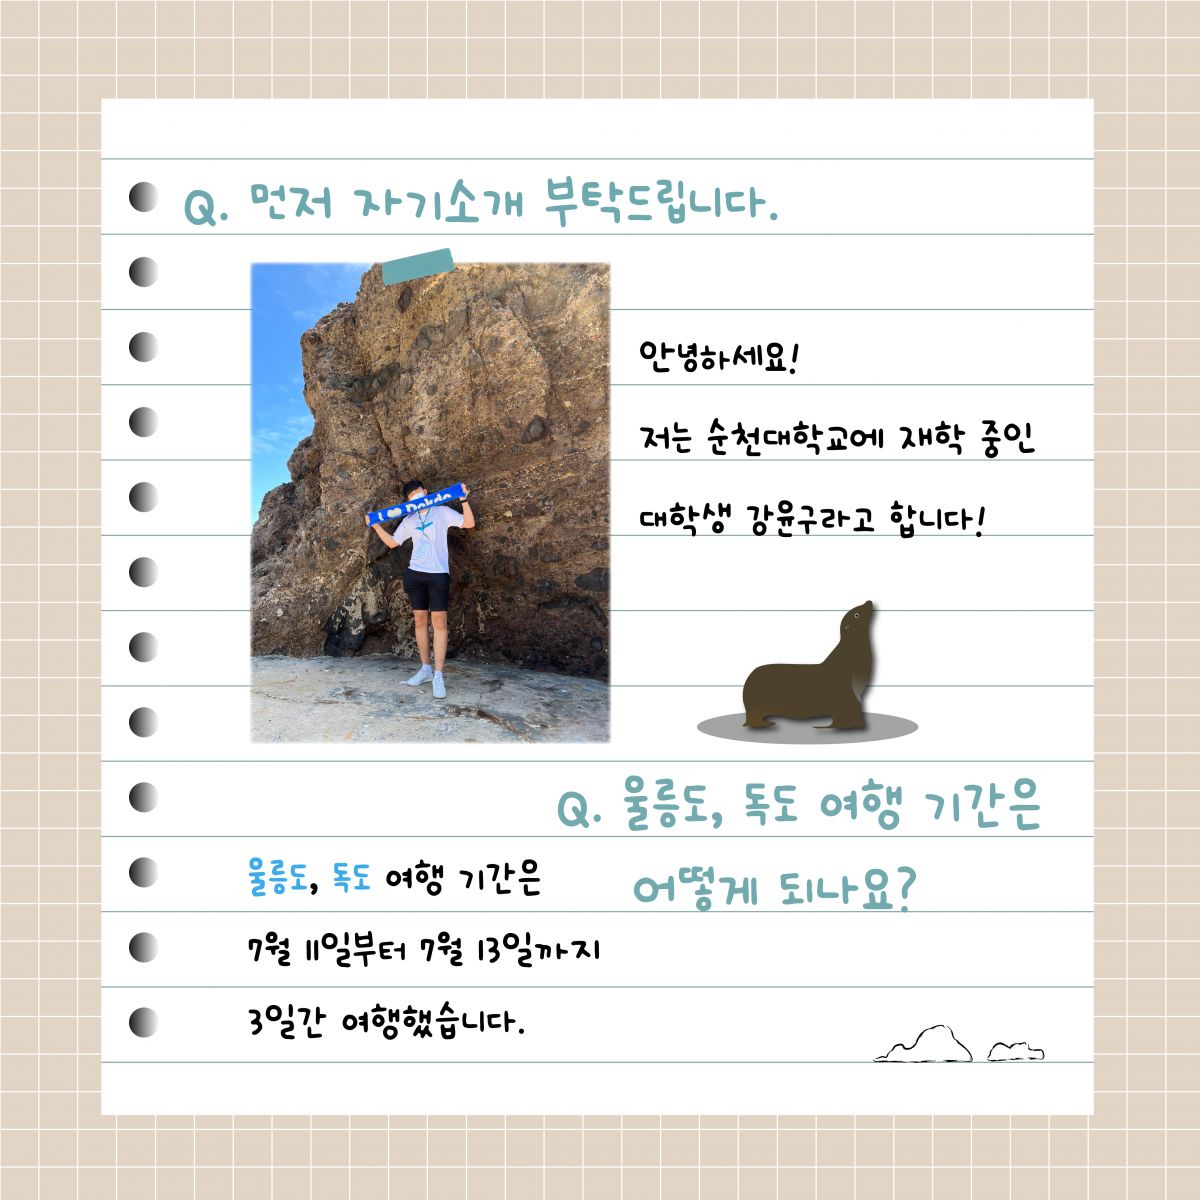 Q. 먼저 자기소개 부탁드립니다.
I ♥ Dokdo
안녕하세요!
저는 순천대학교에 재학 중인
대학생 강윤구라고 합니다!
Q. 울릉도, 독도 여행 기간은
어떻게 되나요?
울릉도, 독도 여행 기간은
7월 11일부터 7월 13일까지
3일간 여행했습니다.